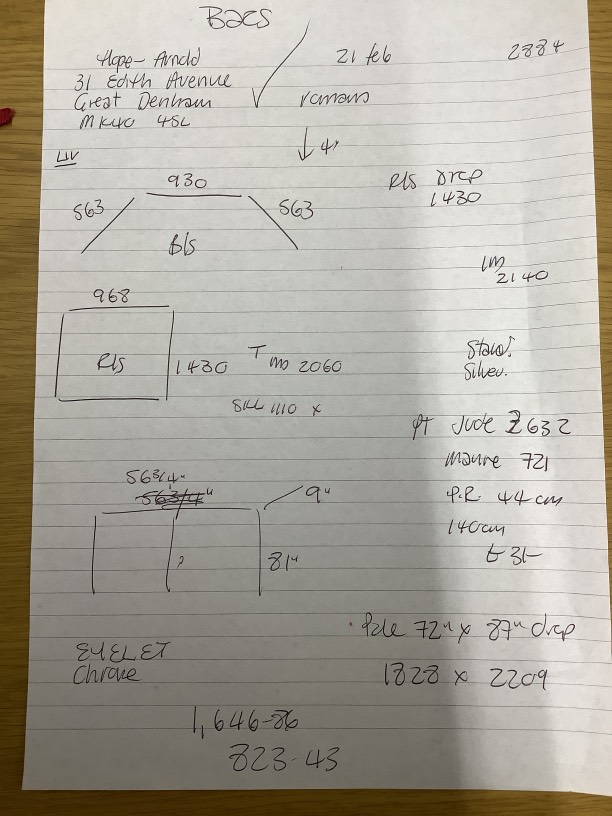 BACS
Hope-Arnold
21 feb
2884
31 Edith Avenue
Great Denham
romans
MK40 4SL
LIV
930
Rls Drop
1430
563
563
Bls
LM
2140
968
Rls
1430
T
2060
Silver.
SILL 1110 x
Jude 2632
mauve 721
P.R 44cm
140cm
£31-
563/4"
9"
81"
Pole 72" x 87" drop
1828 x 2209
EYELET
Chrome
1,646-86
823-43